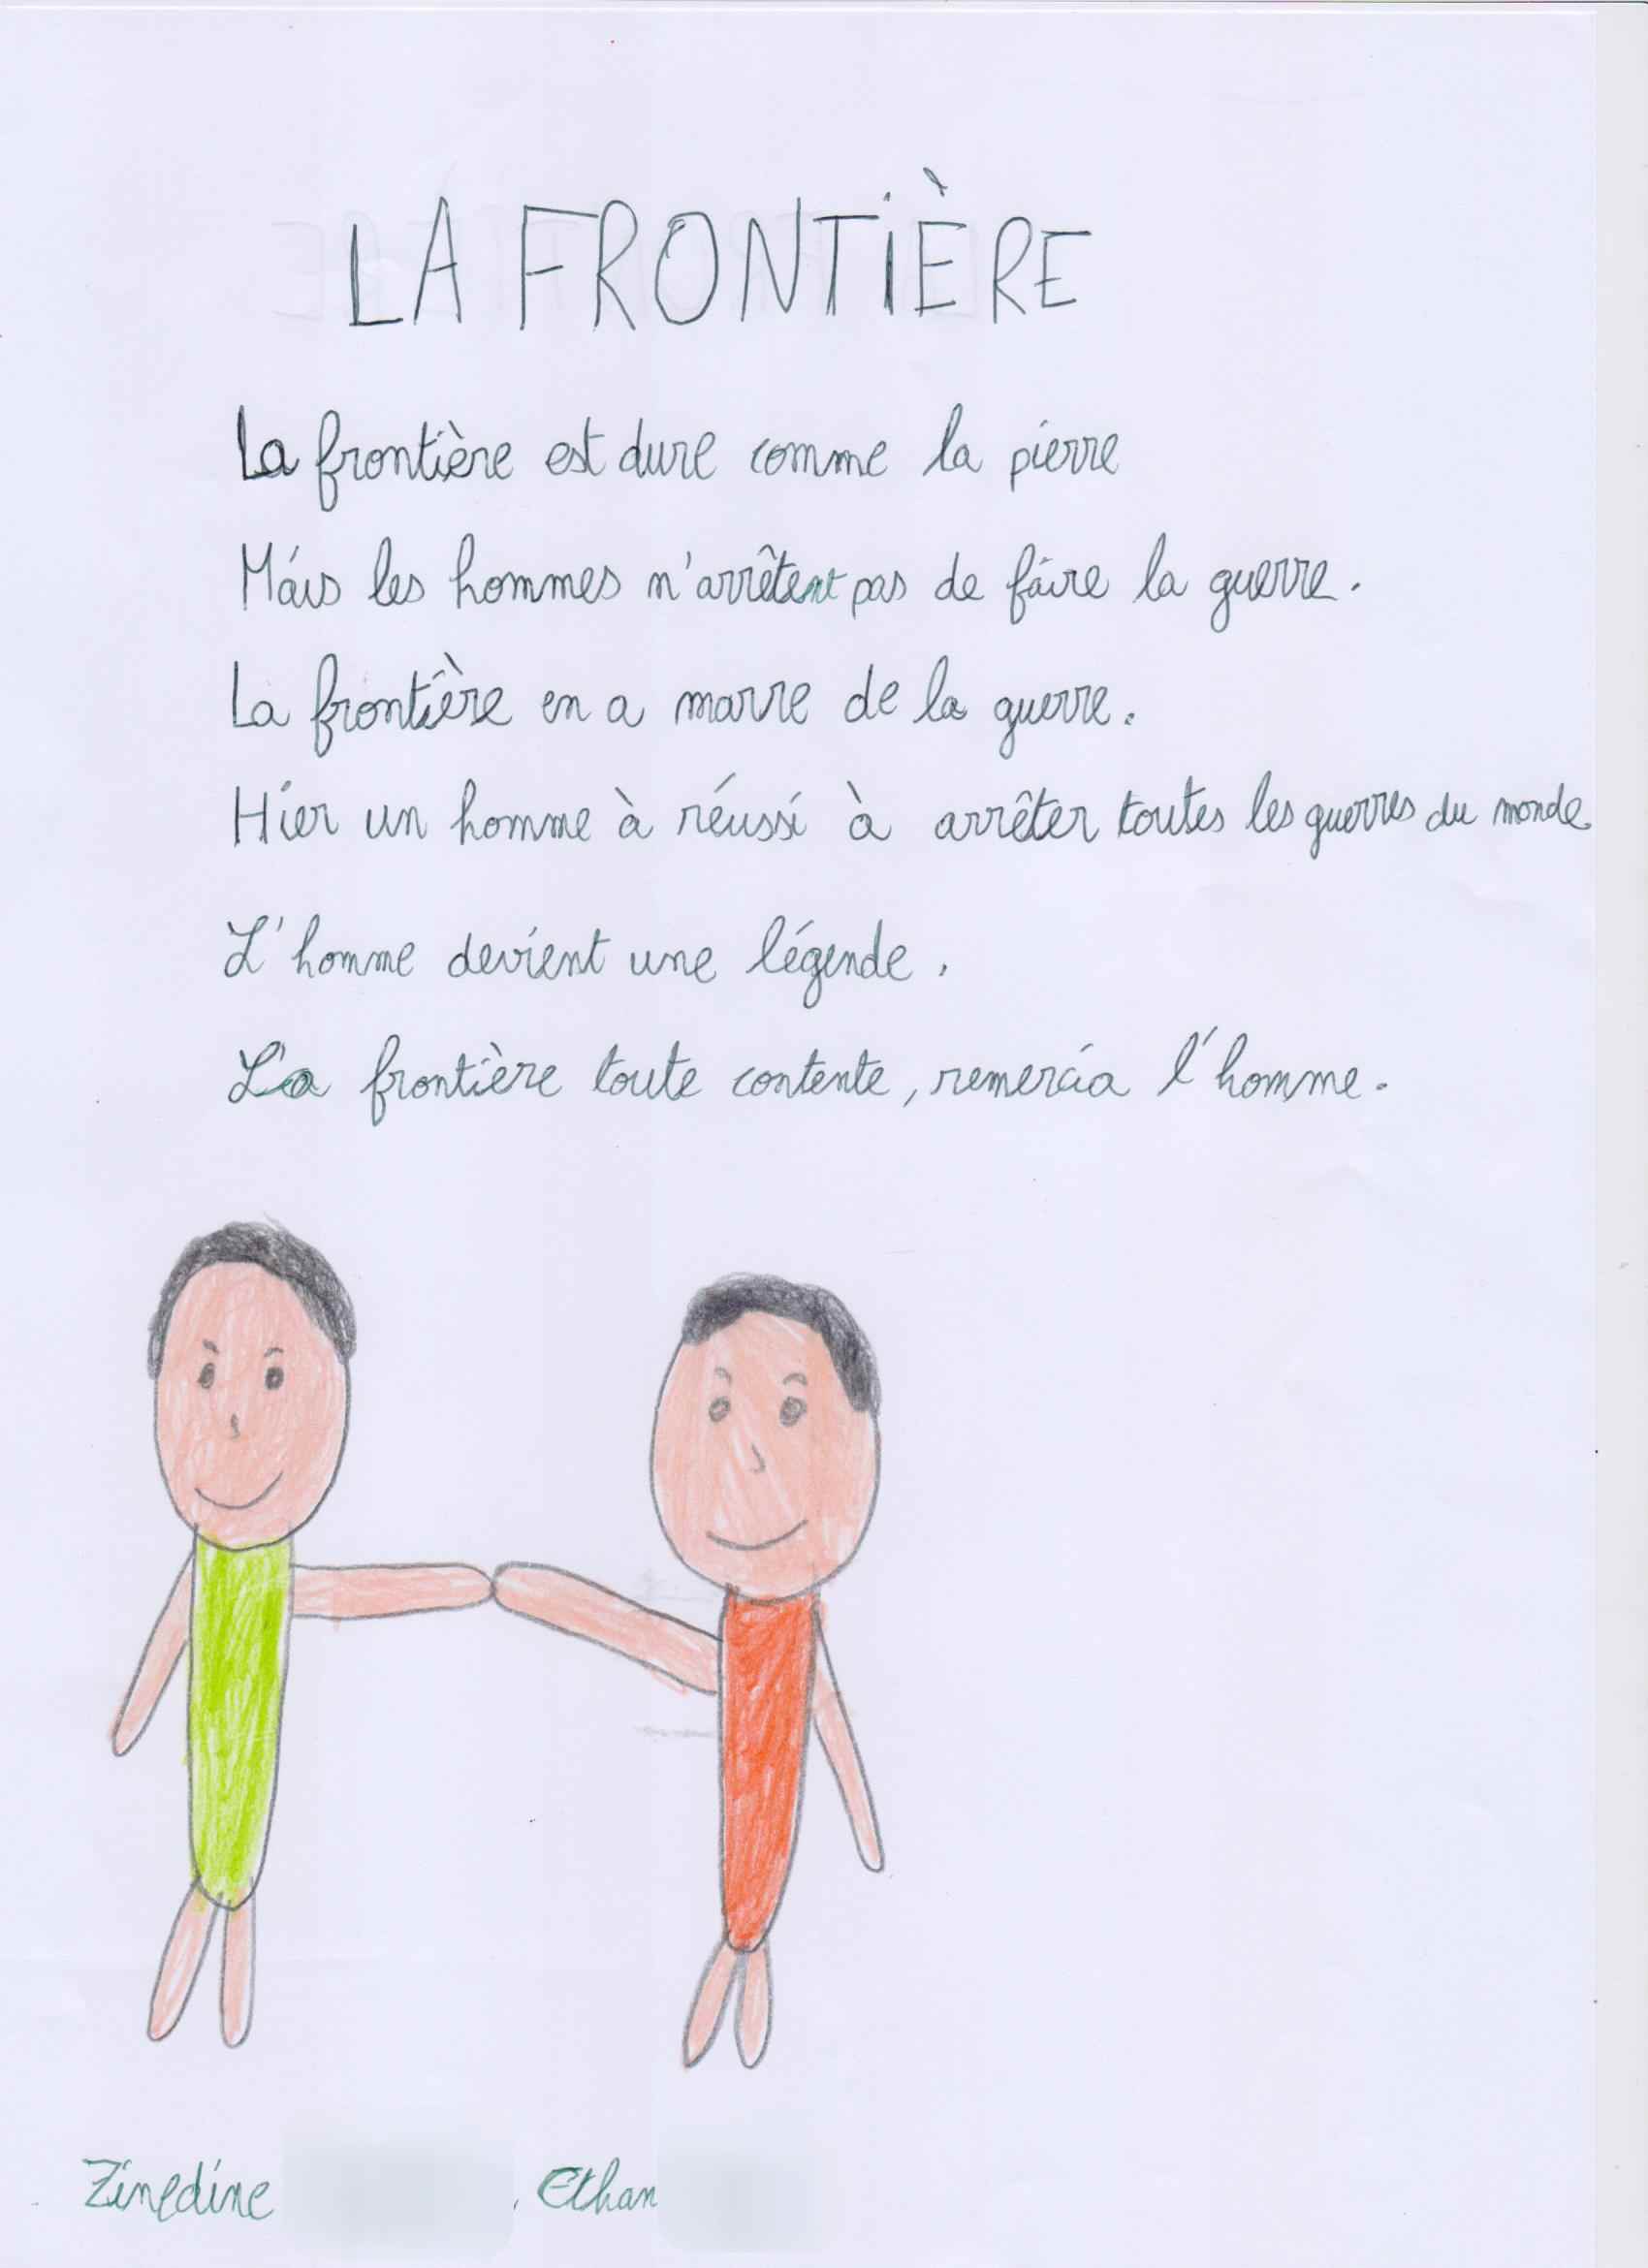 LA FRONTIÈRE
La frontière est dure comme la pierre
Mais les hommes n'arrêtent pas de faire la guerre.
La frontière en a marre de la guerre.
Hier un homme à réussi à arrêter toutes les guerres du monde
L'homme devient une légende.
La frontière toute contente, remercia l'homme.
Zinedine , Ethan